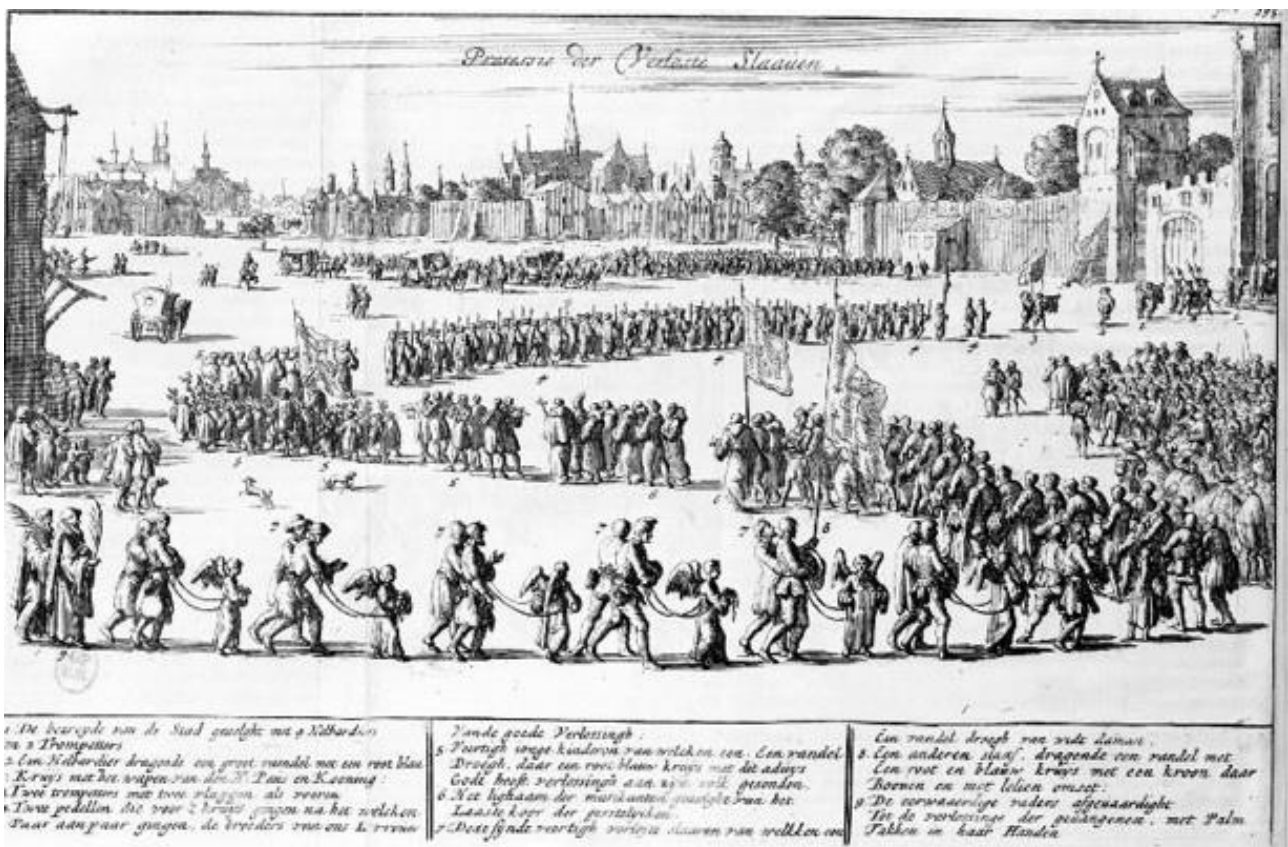 Processie der Verloste Slaauen.
1 De bereyde van de Stad gevolght met 9 Helbardiers
en 2 Trompetters
2 Een Helbardier dragende een groot vaendel met een root blau
Kruys met het wapen van den H. Paus en Koening
Twee trompetters met twee vlaggen als vooren
Twee pedellen die voor 't kruys gingen na het welcken
Paar aan paar gingen, de broeders van ons L vrouw
Vande goede Verlossingh:
5 Veertigh jonge kinderen van welcken een, Een vandel
Droegh, daar een root blauw kruys met dit aduys
Godt heeft verlossingh aan zijn volk gesonden.
6 Het lighaam der gevolght van het
Laaste koor der geestelijken
7 Dese synde veertigh verloste slaaven van welkken een
Een vandel droegh van witt damast,
8 Een anderen slaaf, dragende een vandel met
Een root en blauw kruys met een kroon daar
Boomen en met lelien omset:
9 De eerwaerdige vaders afgevaardight
Tot de verlossinge der gevangenen, met Palm
Takken in haar Handen